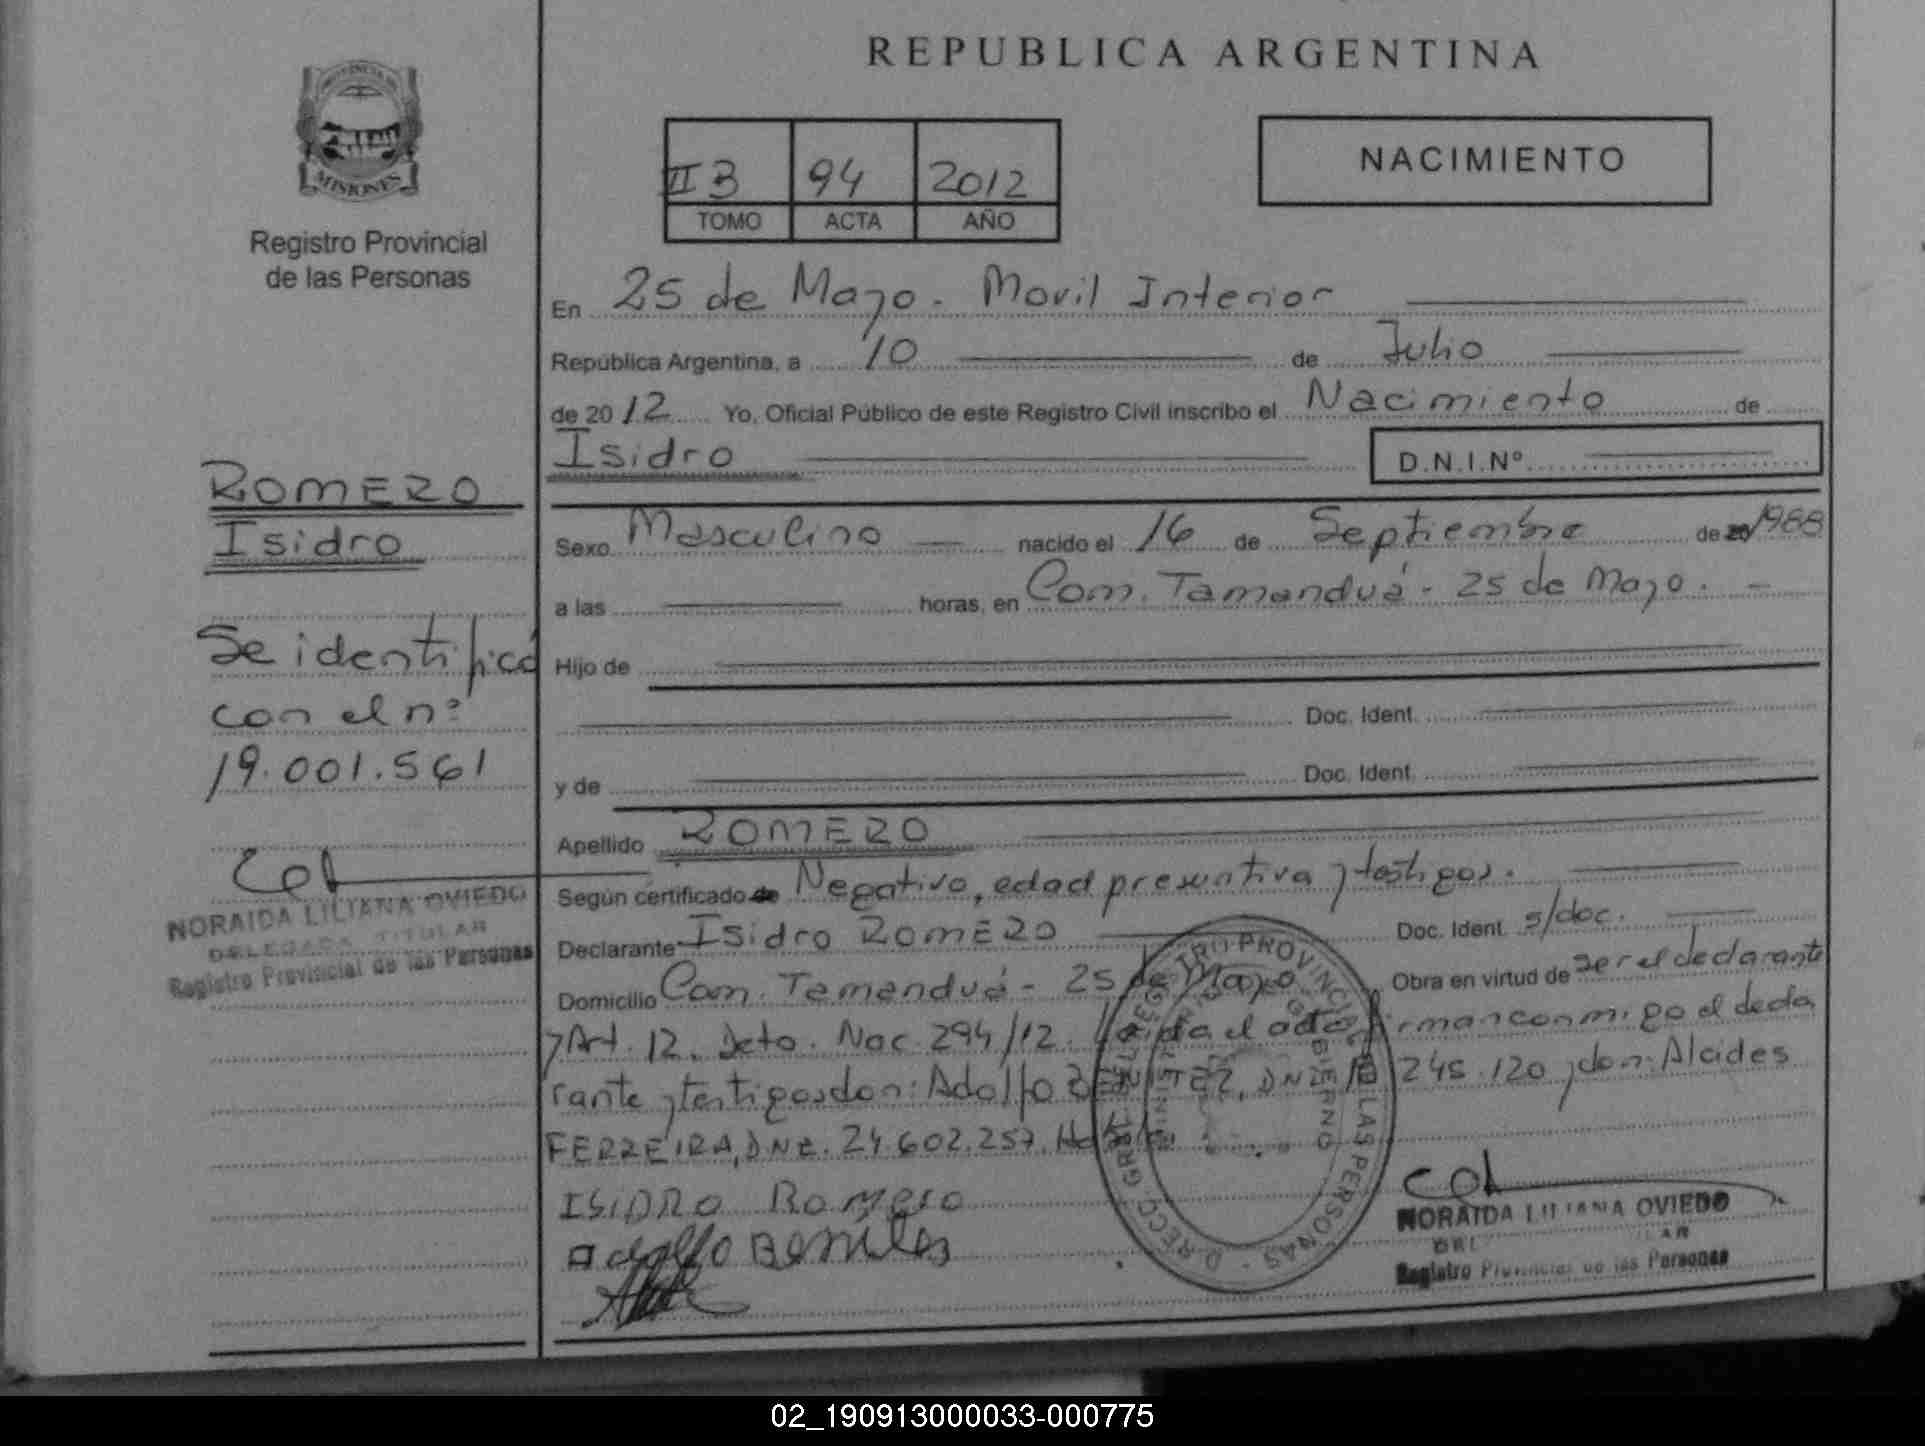 REPUBLICA ARGENTINA
PROVINCIA DE
MISIONES
Registro Provincial
de las Personas
II B 94 2012
TOMO ACTA AÑO
NACIMIENTO
En 25 de Mayo. Movil Interior
República Argentina, a 10 de Julio
de 2012 Yo, Oficial Público de este Registro Civil inscribo el Nacimiento de
Isidro D.N.I.Nº
ROMERO
Isidro
Se identificó
con el nº
19.001.561
NORAIDA LILIANA OVIEDO
DELEGADA TITULAR
Registro Provincial de las Personas
Sexo Masculino nacido el 16 de Septiembre de 20 1988
a las horas, en Com. Tamanduá - 25 de Mayo.
Hijo de
Doc. Ident.
y de Doc. Ident.
Apellido ROMERO
Según certificado de Negativo, edad presuntiva y testigos.
Declarante Isidro ROMERO Doc. Ident. s/doc.
Domicilio Com. Tamanduá - 25 de Mayo Obra en virtud de ser el declarante
y Art. 12. Dcto. Nac. 294/12. Leida el acta firman conmigo el decla
rante y testigos don: Adolfo BENITEZ, DNI 245.120 y don: Alcides
FERREIRA, DNI. 24.602.257.
ISIDRO Romero
Adolfo Benites
REGISTRO PROVINCIAL DE LAS PERSONAS
NORAIDA LILIANA OVIEDO
Registro Provincial de las Personas
02_190913000033-000775